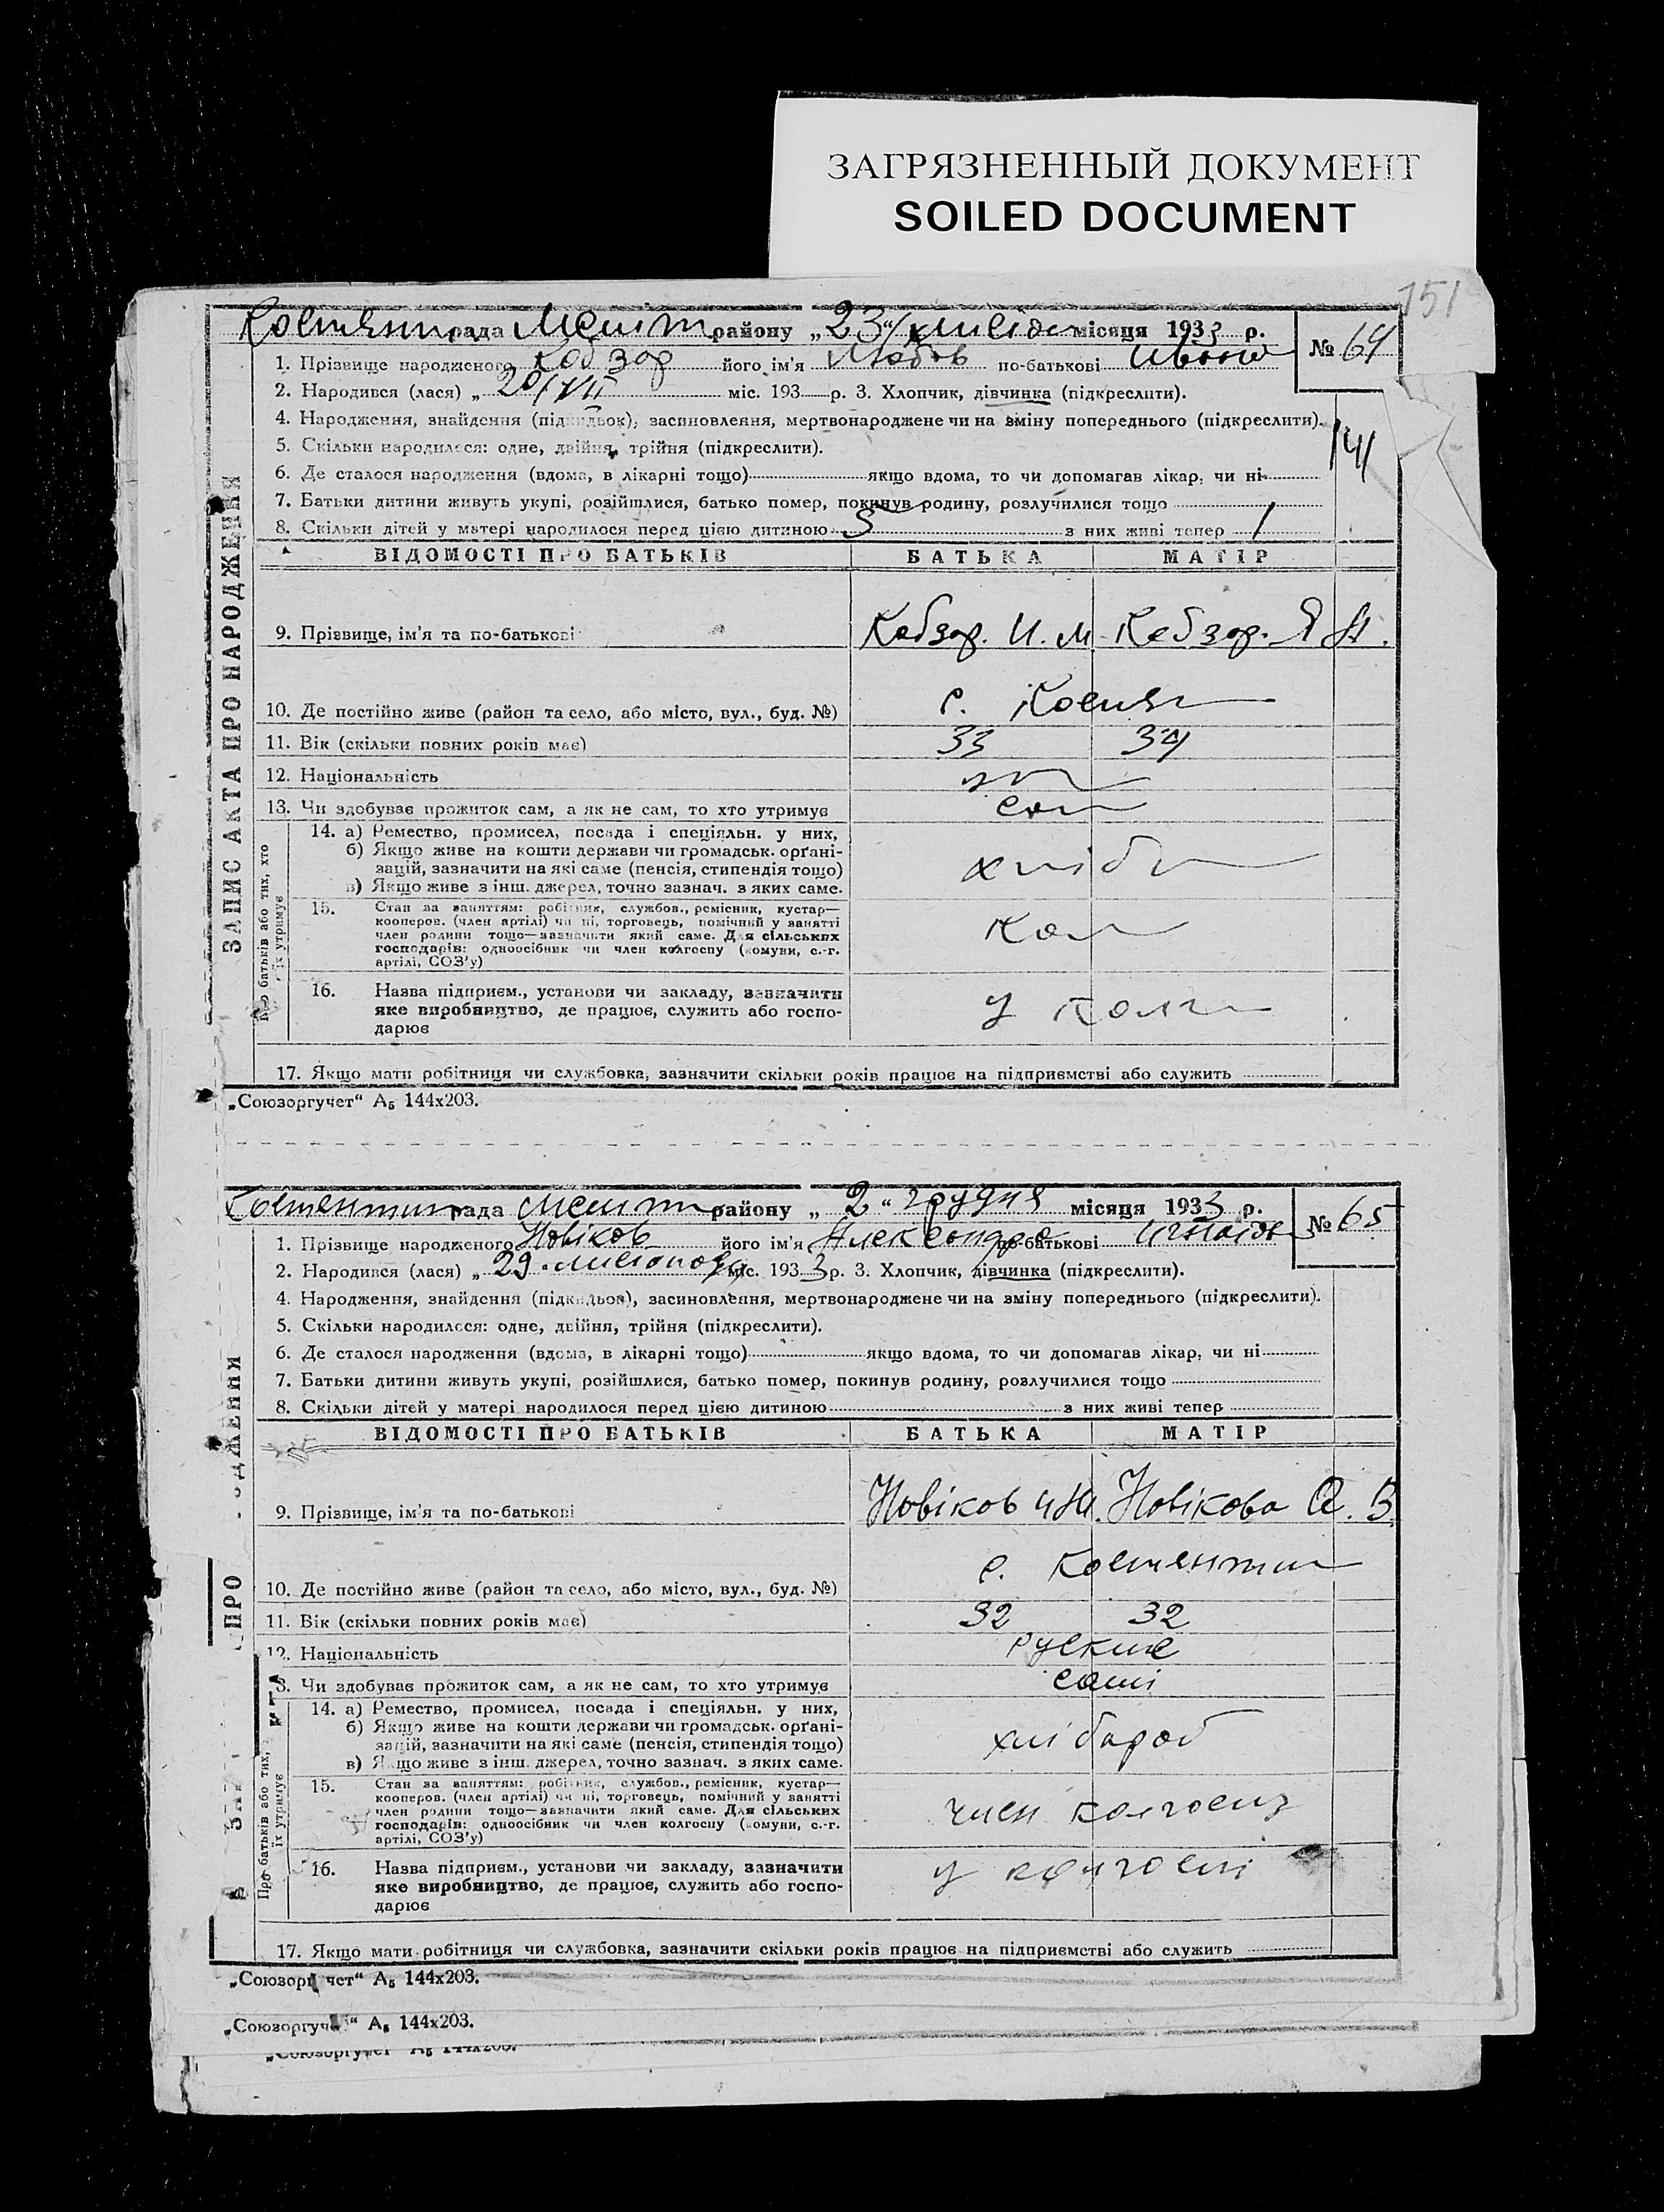 ЗАГРЯЗНЕННЫЙ ДОКУМЕНТ
SOILED DOCUMENT
151
рада району „ 23 “ місяця 1933 р.
№ 64
1. Прізвище народженого Кобзар його ім'я Любов по-батькові
2. Народився (лася) „ 20/VII міс. 193 р. 3. Хлопчик, дівчинка (підкреслити).
4. Народження, знайдення (підкидьок), засиновлення, мертвонароджене чи на зміну попереднього (підкреслити).
141
5. Скільки народилося: одне, двійня, трійня (підкреслити).
6. Де сталося народження (вдома, в лікарні тощо) якщо вдома, то чи допомагав лікар, чи ні
7. Батьки дитини живуть укупі, розійшлися, батько помер, покинув родину, розлучилися тощо
8. Скільки дітей у матері народилося перед цією дитиною 5 з них живі тепер 1
ВІДОМОСТІ ПРО БАТЬКІВ БАТЬКА МАТІР
9. Прізвище, ім'я та по-батькові Кобзар. И. М Кобзар. Я
10. Де постійно живе (район та село, або місто, вул., буд. №) с.
11. Вік (скільки повних років має) 33 34
12. Національність
13. Чи здобуває прожиток сам, а як не сам, то хто утримує
14. а) Ремество, промисел, посада і спеціяльн. у них,
б) Якщо живе на кошти держави чи громадськ. орґані-
зацій, зазначити на які саме (пенсія, стипендія тощо)
в) Якщо живе з інш. джерел, точно зазнач. з яких саме.
15. Стан за заняттям: робітник, службов., ремісник, кустар—
кооперов. (член артілі) чи ні, торговець, помічний у занятті
член родини тощо—зазначити який саме. Для сільських
господарів: одноосібник чи член колгоспу (комуни, с.-г.
артілі, СОЗ'у)
16. Назва підприєм., установи чи закладу, зазначити
яке виробництво, де працює, служить або госпо-
дарює
17. Якщо мати робітниця чи службовка, зазначити скільки років працює на підприємстві або служить
ЗАПИС АКТА ПРО НАРОДЖЕННЯ
Про батьків або тих, хто
їх утримує
„Союзоргучет“ А₅ 144х203.
рада району „ 2 “ грудня місяця 1933 р.
№ 65
1. Прізвище народженого Новіков його ім'я Александра по-батькові
2. Народився (лася) „ 29 листопада міс. 193 3 р. 3. Хлопчик, дівчинка (підкреслити).
4. Народження, знайдення (підкидьок), засиновлення, мертвонароджене чи на зміну попереднього (підкреслити).
5. Скільки народилося: одне, двійня, трійня (підкреслити).
6. Де сталося народження (вдома, в лікарні тощо) якщо вдома, то чи допомагав лікар, чи ні
7. Батьки дитини живуть укупі, розійшлися, батько помер, покинув родину, розлучилися тощо
8. Скільки дітей у матері народилося перед цією дитиною з них живі тепер
ВІДОМОСТІ ПРО БАТЬКІВ БАТЬКА МАТІР
9. Прізвище, ім'я та по-батькові Новіков Новікова О. В.
10. Де постійно живе (район та село, або місто, вул., буд. №) с.
11. Вік (скільки повних років має) 32 32
12. Національність руские
3. Чи здобуває прожиток сам, а як не сам, то хто утримує самі
14. а) Ремество, промисел, посада і спеціяльн. у них,
б) Якщо живе на кошти держави чи громадськ. орґані-
зацій, зазначити на які саме (пенсія, стипендія тощо)
в) Якщо живе з інш. джерел, точно зазнач. з яких саме.
хлібороб
15. Стан за заняттям: робітник, службов., ремісник, кустар—
кооперов. (член артілі) чи ні, торговець, помічний у занятті
член родини тощо—зазначити який саме. Для сільських
господарів: одноосібник чи член колгоспу (комуни, с.-г.
артілі, СОЗ'у)
член колгоспу
16. Назва підприєм., установи чи закладу, зазначити
яке виробництво, де працює, служить або госпо-
дарює
у колгоспі
17. Якщо мати робітниця чи службовка, зазначити скільки років працює на підприємстві або служить
ПРО
Про батьків або тих,
їх утримує
„Союзорг чет“ А₅ 144х203.
„Союзоргуч “ А₅ 144х203.
„Союзоргучет“ А₅ 144х203.